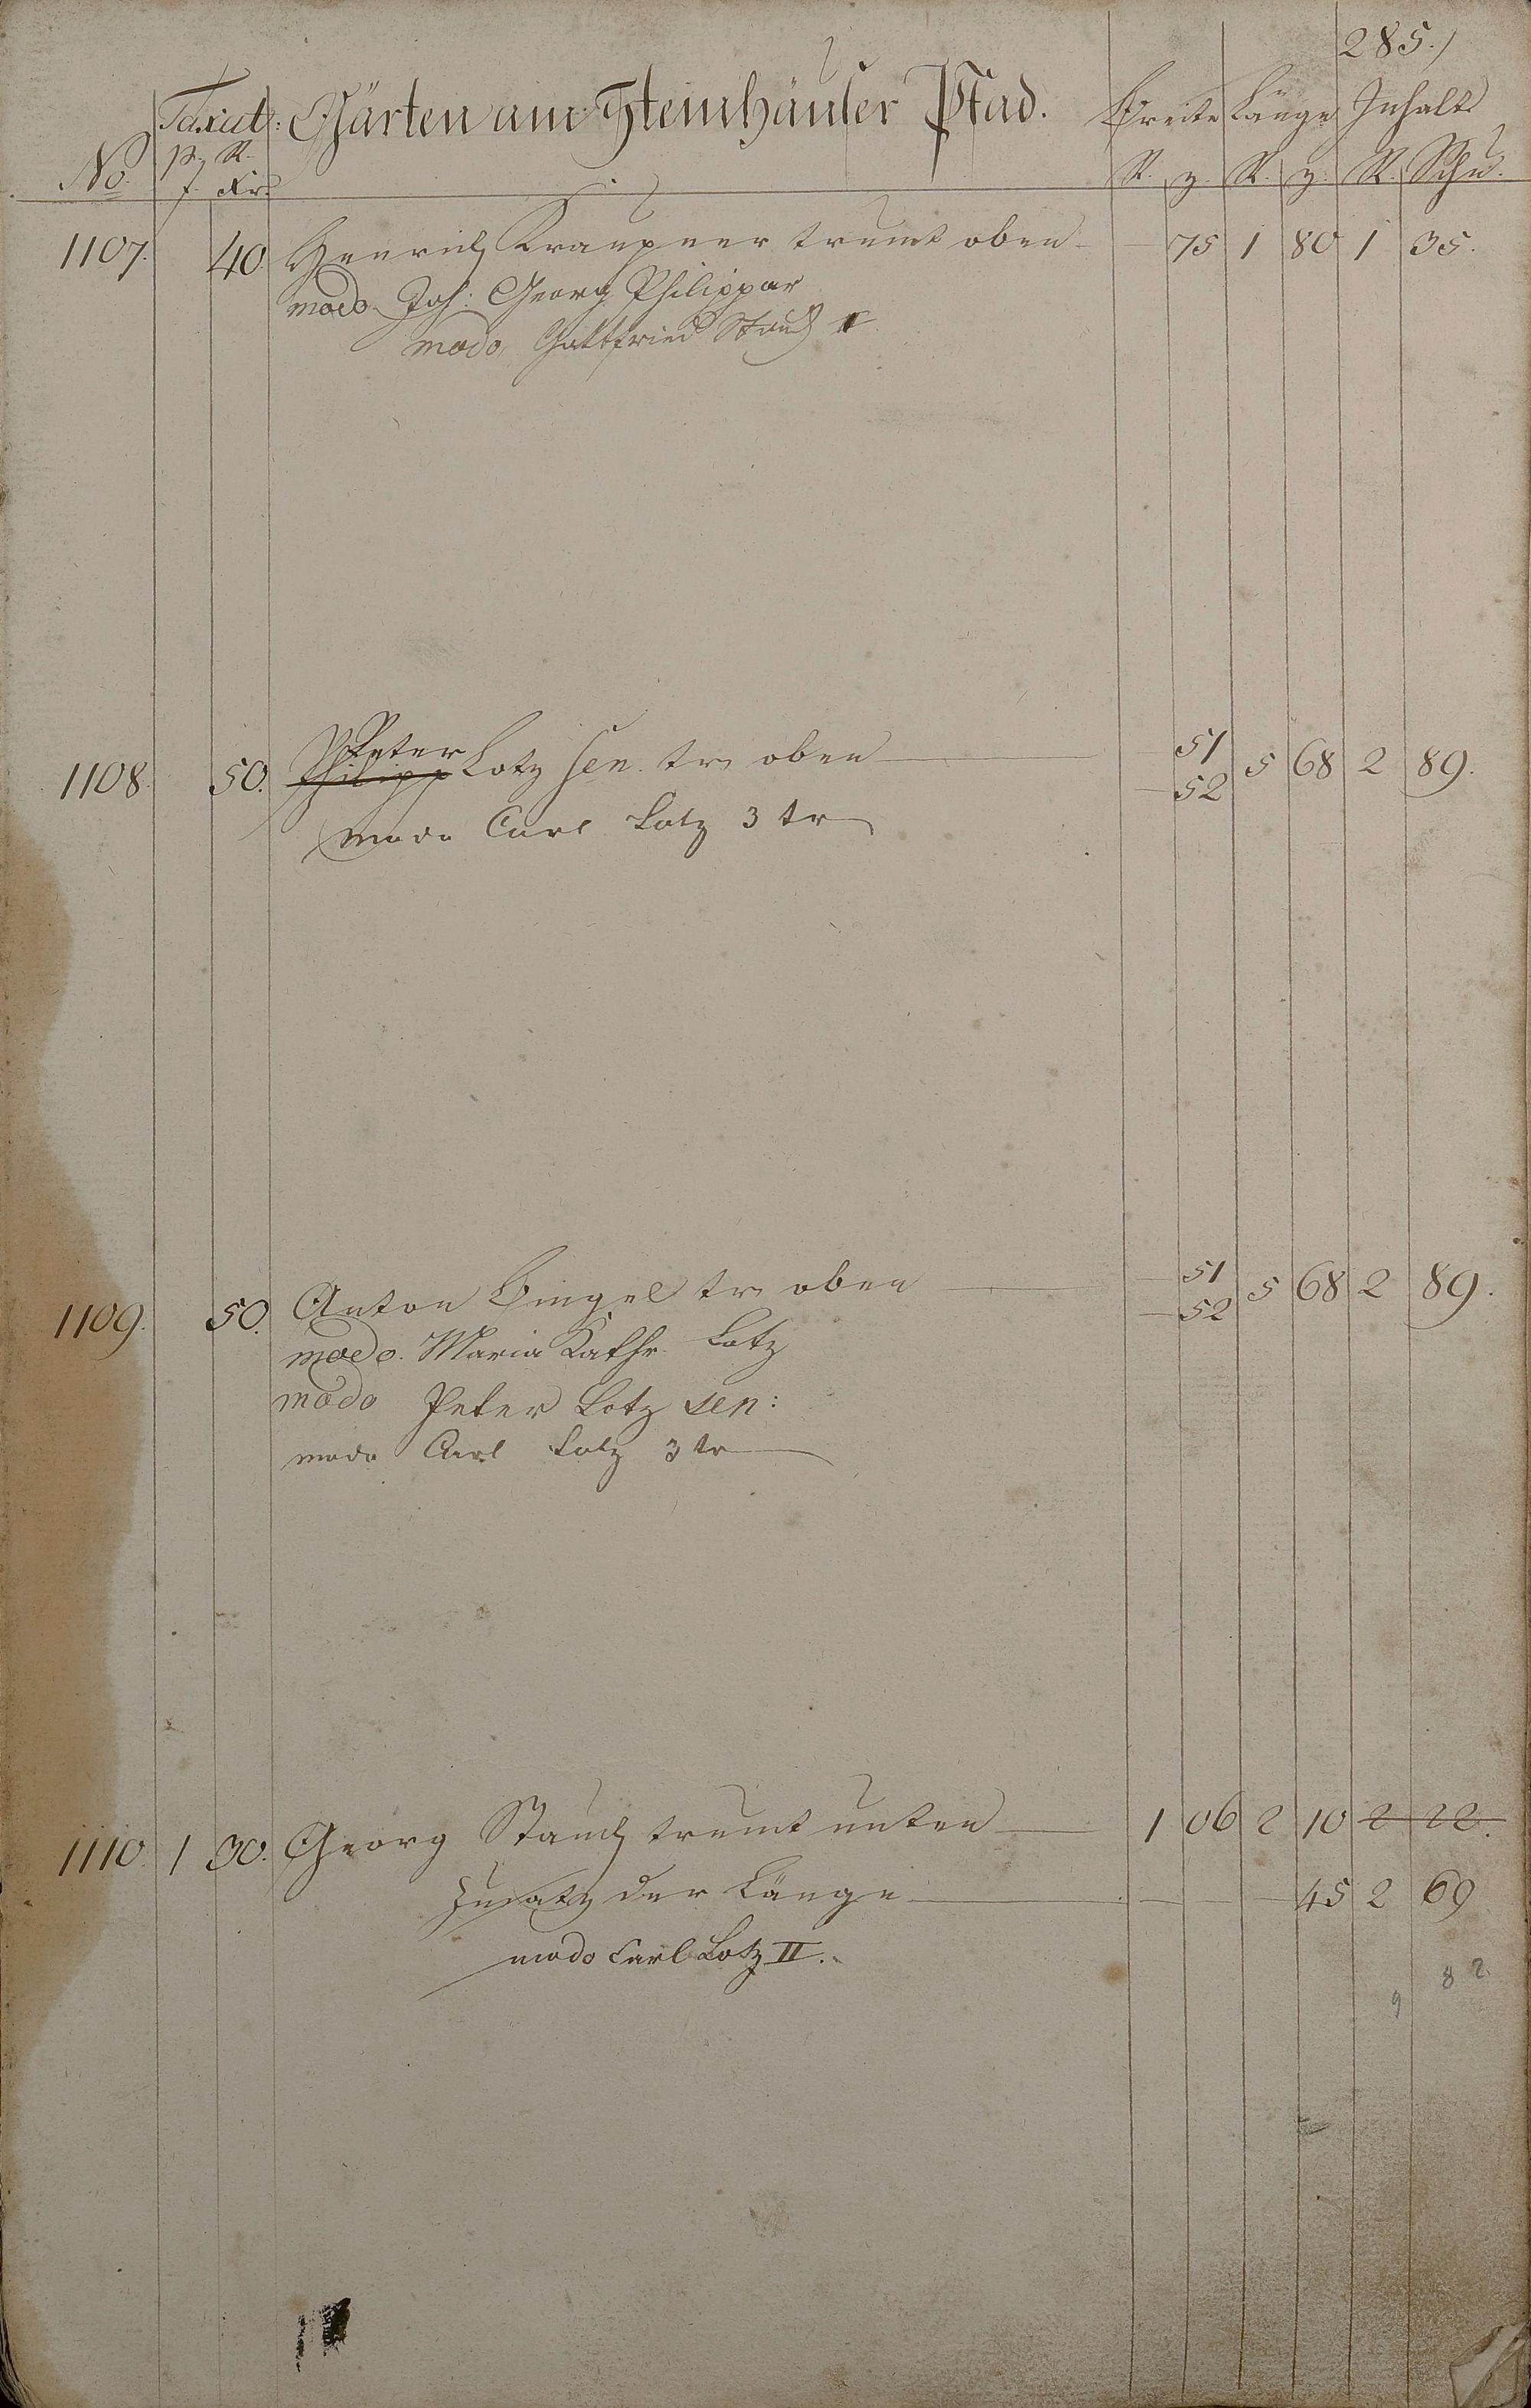 285.)
Taxat: Gärten am Steinhäuser Pfad. Breite Länge Inhalt
No. p. R. R. z. R. z. R. Schu.
f. Kr.
1107. 40. Henrich Kraupner trumt oben 75 1 80 1 35.
modo Joh: Georg Philippar
modo Gottfried Stauch
Peter
1108. 50. Philipp Lotz sen. tr oben 51 52 5 68 2 89.
modo Carl Lotz 3 tr
1109. 50. Anton Bingel tr oben 51 52 5 68 2 89.
modo. Maria Kathr. Lotz
modo Peter Lotz sen:
modo Carl Lotz 3 tr
1110. 1 30. Georg Stauch trumt unten 1 06 2 10 2 22.
Zusatz der Länge 45 2 69
modo Carl Lotz II.
9 82